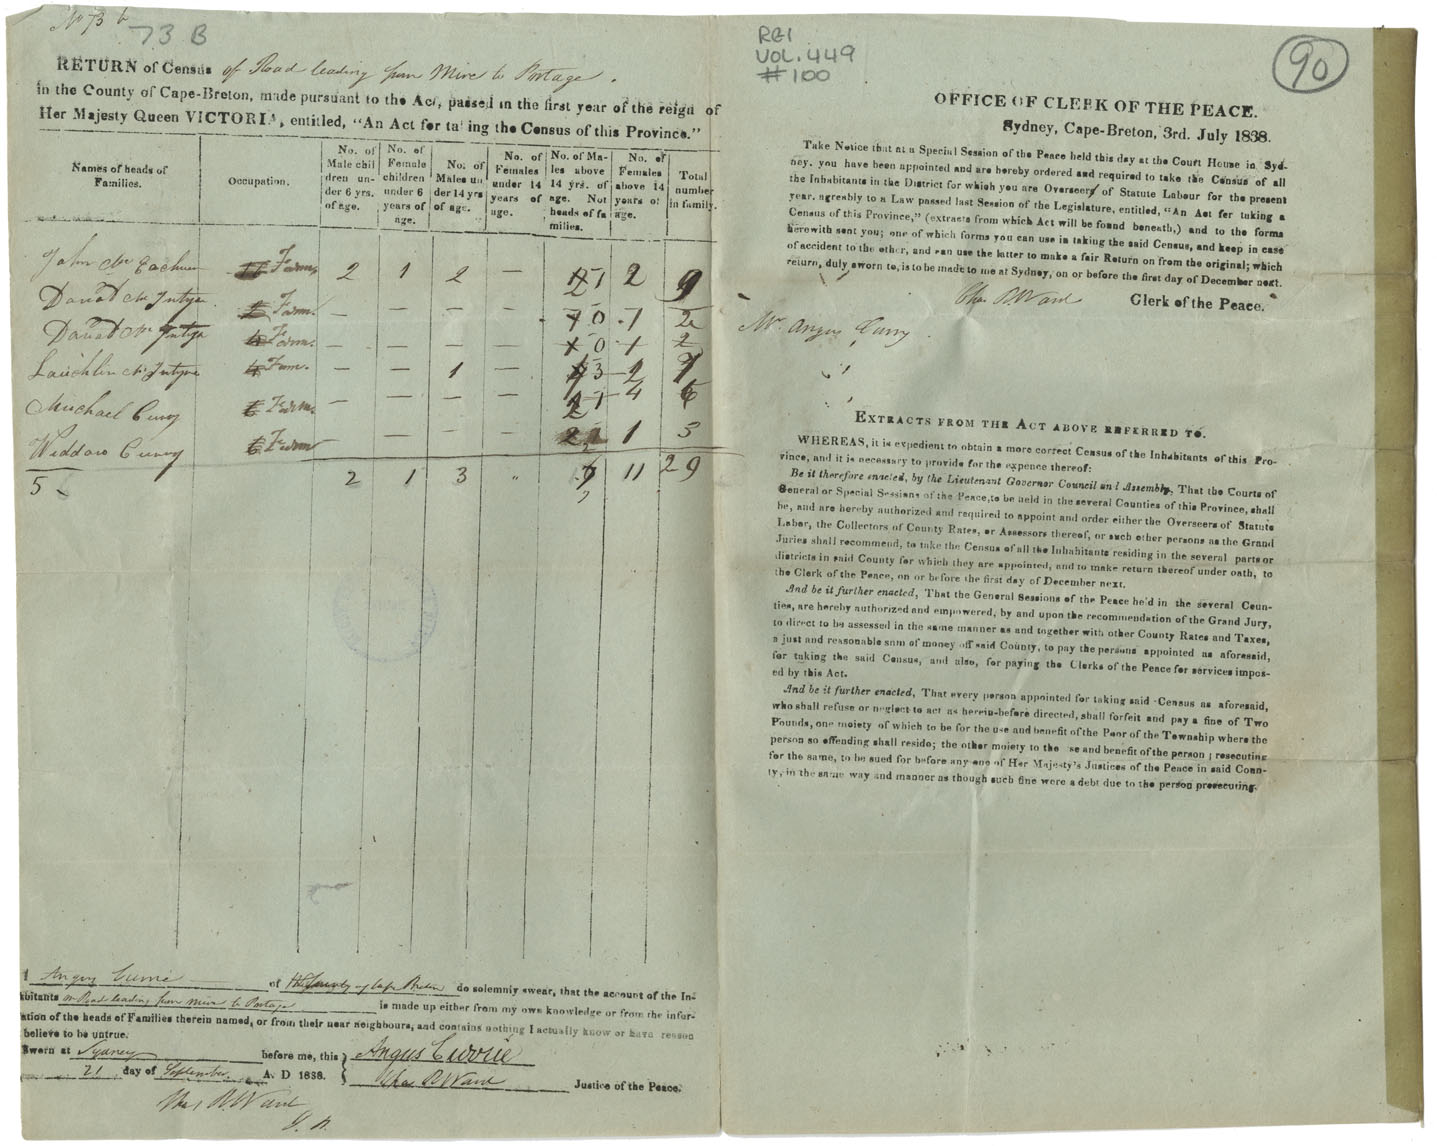 No 73 b
73 B
RETURN of Census of Road leading from Mire to Portage.
in the County of Cape-Breton, made pursuant to the Act, passed in the first year of the reign of
Her Majesty Queen VICTORIA, entitled, "An Act for taking the Census of this Province."
Names of heads of Families. Occupation. No. of Male children under 6 yrs. of age. No. of Female children under 6 years of age. No. of Males under 14 yrs of age. No. of Females under 14 years of age. No. of Males above 14 yrs. of age. Not heads of families. No. of Females above 14 years of age. Total number in family.
John Mc Eachern Farm 2 1 2 — 1 2 9
Donald Mc Intyre Farm — — — — 0 1 2
Donald Mc Intyre Farm — — — — 0 1 2
Lauchlin Mc Intyre Farm — — 1 — 3 2 7
Michael Curry Farm — — — — 1 4 6
Widdow Curry Farm — — — 2 1 3
5 2 1 3 " 11 29
I Angus Currie of the County of Cape Breton do solemnly swear, that the account of the In-
habitants on Road leading from Mire to Portage is made up either from my own knowledge or from the infor-
mation of the heads of Families therein named, or from their near neighbours, and contains nothing I actually know or have reason
believe to be untrue.
Sworn at Sydney before me, this Angus Currie
21 day of September A. D 1838. Chas R Ward Justice of the Peace.
Chas R Ward
J. P.
RG1
VOL. 449
#100
90
OFFICE OF CLERK OF THE PEACE.
Sydney, Cape-Breton, 3rd. July 1838.
Take Notice that at a Special Session of the Peace held this day at the Court House in Syd-
ney, you have been appointed and are hereby ordered and required to take the Census of all
the Inhabitants in the District for which you are Overseer of Statute Labour for the present
year, agreably to a Law passed last Session of the Legislature, entitled, "An Act for taking a
Census of this Province," (extracts from which Act will be found beneath,) and to the forms
herewith sent you; one of which forms you can use in taking the said Census, and keep in case
of accident to the other, and can use the latter to make a fair Return on from the original; which
return, duly sworn to, is to be made to me at Sydney, on or before the first day of December next.
Chas R Ward Clerk of the Peace.
Mr. Angus Curry
EXTRACTS FROM THE ACT ABOVE REFERRED TO.
WHEREAS, it is expedient to obtain a more correct Census of the Inhabitants of this Pro-
vince, and it is necessary to provide for the expence thereof:
Be it therefore enacted, by the Lieutenant Governor Council and Assembly, That the Courts of
General or Special Sessions of the Peace, to be held in the several Counties of this Province, shall
be, and are hereby authorized and required to appoint and order either the Overseers of Statute
Labor, the Collectors of County Rates, or Assessors thereof, or such other persons as the Grand
Juries shall recommend, to take the Census of all the Inhabitants residing in the several parts or
districts in said County for which they are appointed, and to make return thereof under oath, to
the Clerk of the Peace, on or before the first day of December next.
And be it further enacted, That the General Sessions of the Peace he'd in the several Coun-
ties, are hereby authorized and empowered, by and upon the recommendation of the Grand Jury,
to direct to be assessed in the same manner as and together with other County Rates and Taxes,
a just and reasonable sum of money off said County, to pay the persons appointed as aforesaid,
for taking the said Census, and also, for paying the Clerks of the Peace for services impos-
ed by this Act.
And be it further enacted, That every person appointed for taking said Census as aforesaid,
who shall refuse or neglect to act as herein-before directed, shall forfeit and pay a fine of Two
Pounds, one moiety of which to be for the use and benefit of the Poor of the Township where the
person so offending shall reside; the other moiety to the use and benefit of the person prosecuting
for the same, to be sued for before any one of Her Majesty's Justices of the Peace in said Coun-
ty, in the same way and manner as though such fine were a debt due to the person prosecuting.